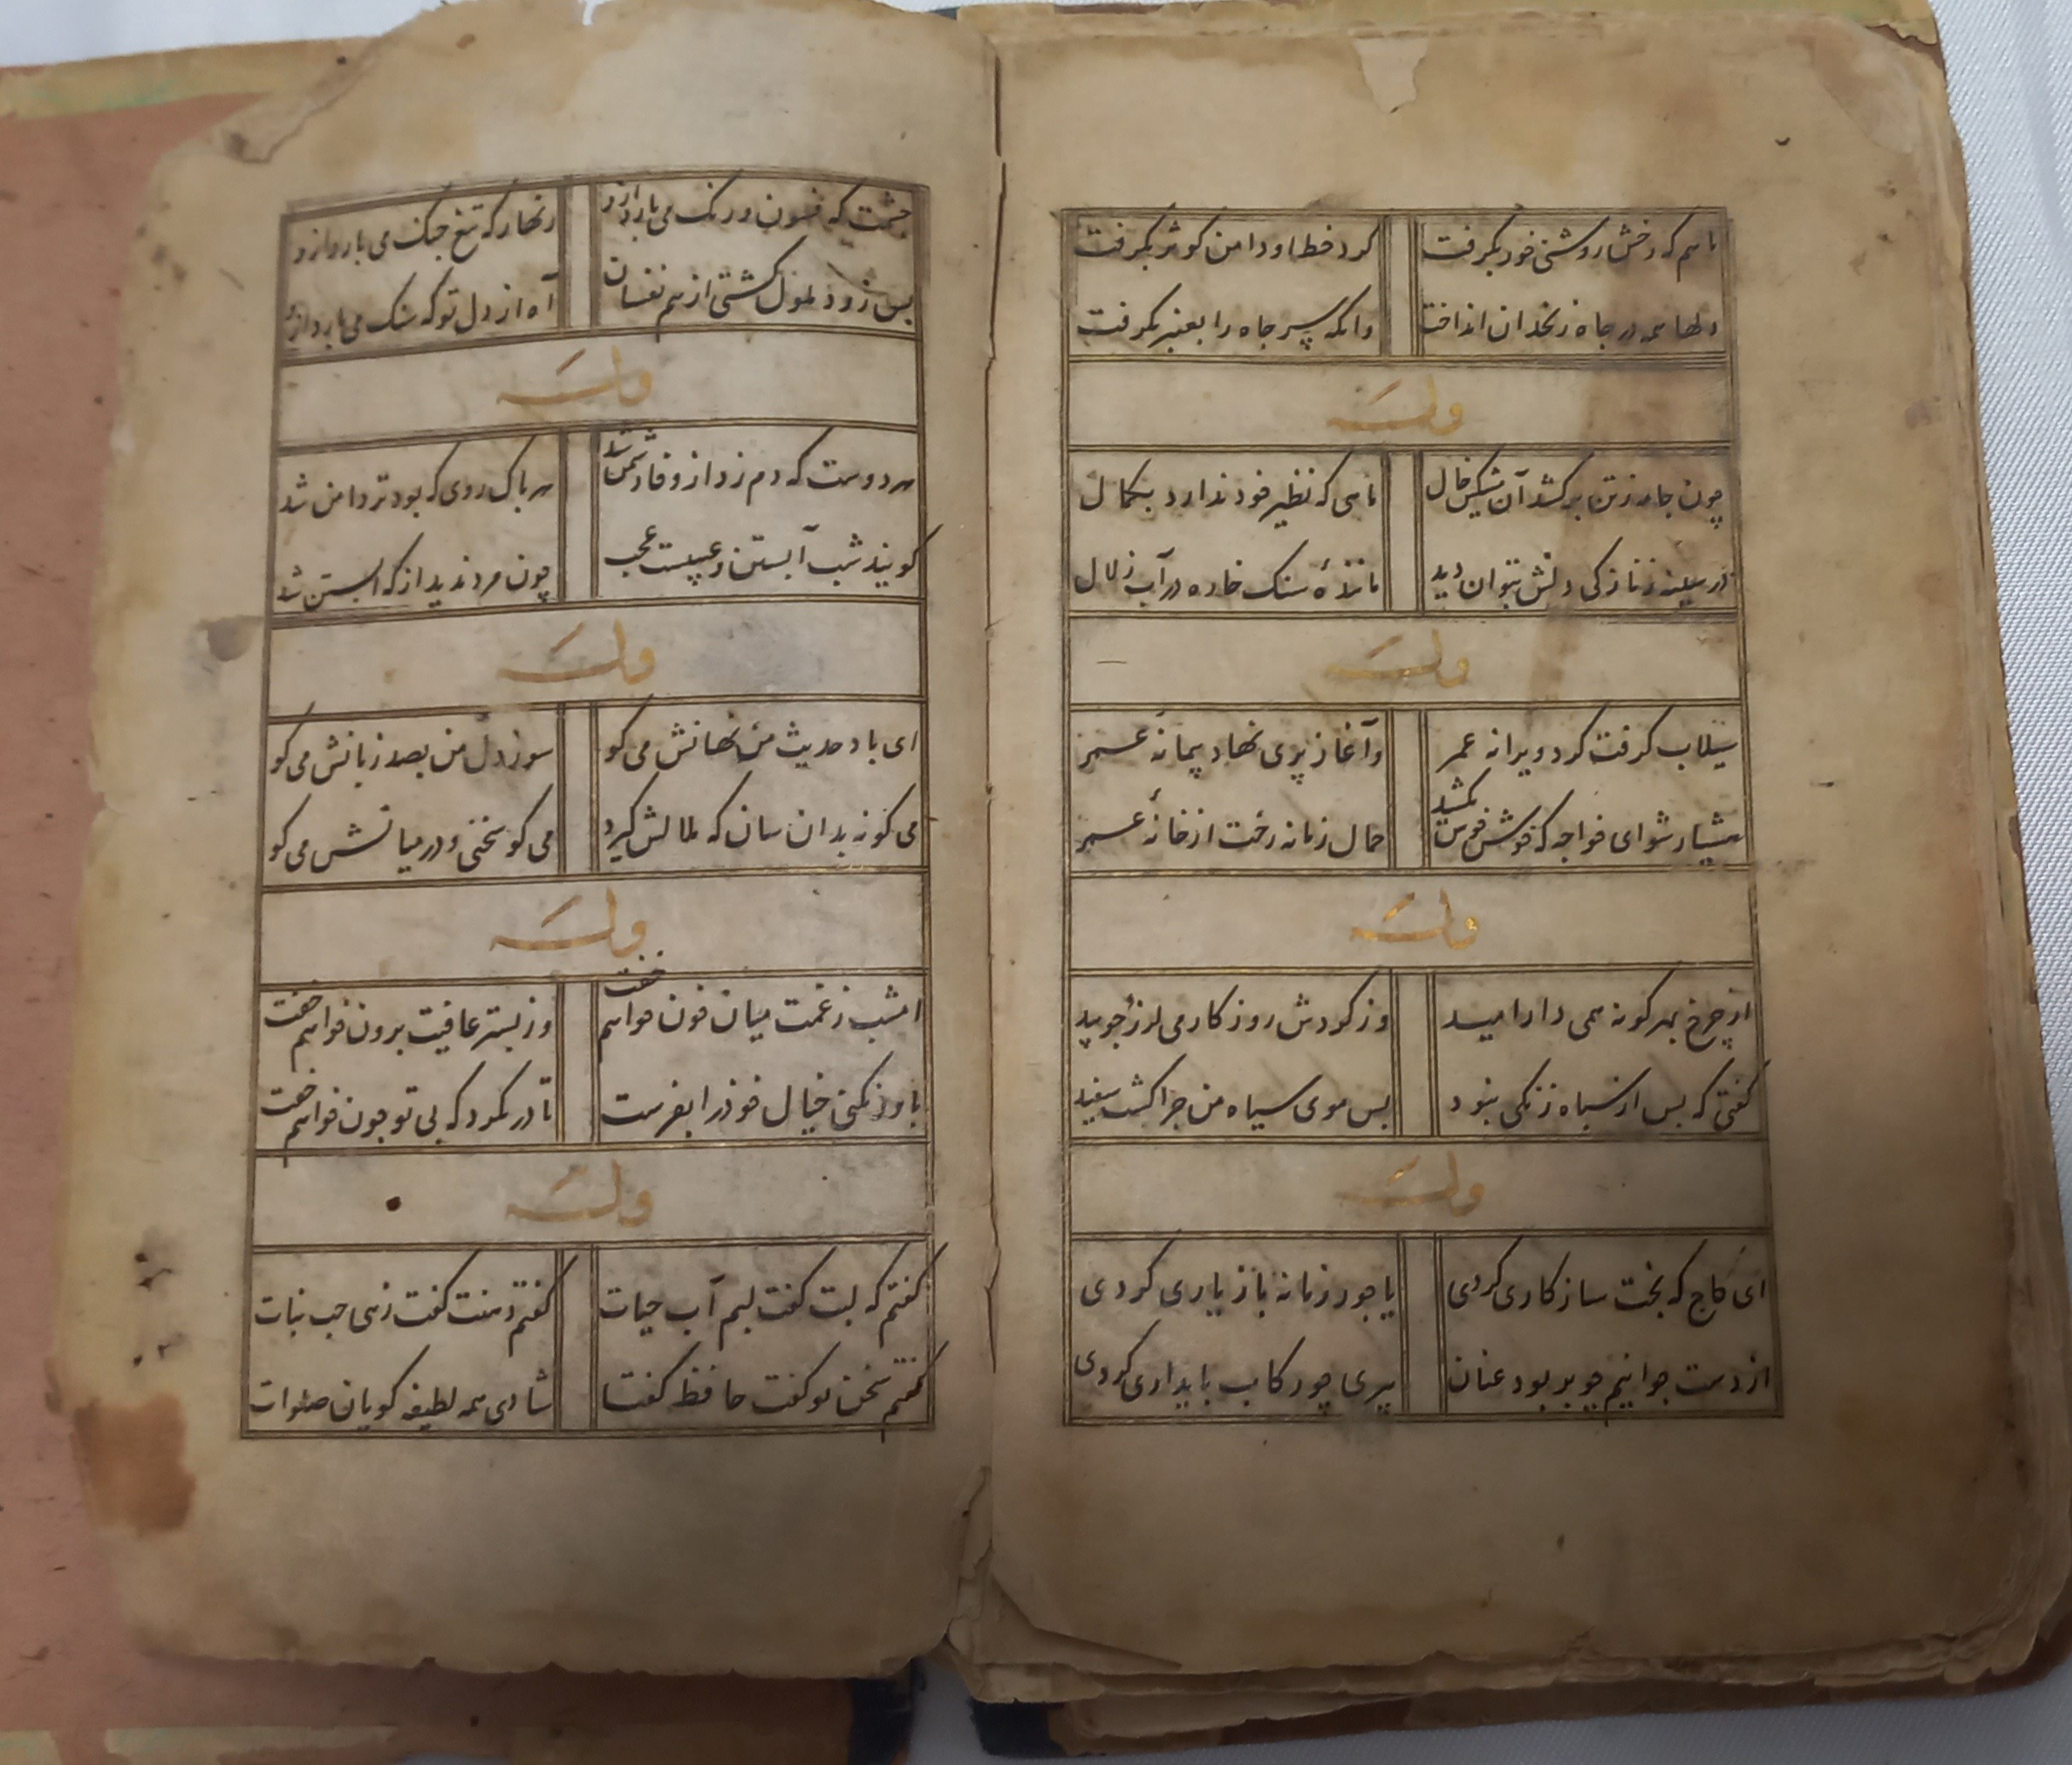 ماهم که رخش روشنی خور بگرفت کرد خط او دامن کوثر بگرفت
دلها همه در جاه زنخدان انداخت وانکه سر جاه را بعنبر بگرفت
وله
چون جامه زتن بر کشد آن مشکین خال ماهی که نظیر خود ندارد بکمال
در سینه زنازکی دلش بتوان دید ماننده سنک خاره در آب زلال
وله
سیلاب کرفت کرد ویرانه عمر وآغاز پری نهاد پیمانه عمر
هشیار شو ای خواجه که خوش خوش بکشد حمال زمانه رخت از خانه عمر
وله
از چرخ بهر کونه همی دار امید وز کردش روزکار می لرز چو بید
کفتی که بس از سیاه رنکی نبود بس موی سیاه من جرا کشت سفید
وله
ای کاج که بخت سازکاری کردی یا جور زمانه باز یاری کردی
از دست جوانیم چو بربود عنان پیری چو رکاب بایداری کردی
چشمت که فسون ورنک می بارد ازو زنهار که تیغ جنک می بارد ازو
بس زود ملول کشتی از هم نفسان آه از دل تو که سنک می بارد ازو
وله
هر دوست که دم زد از وفا دشمن شد هر باک روی که بود تر دامن شد
کویند شب آبستن و عیبست عجب چون مرد ندید از که ابستن شد
وله
ای باد حدیث من نهانش می کو سوز دل من بصد زبانش می کو
می کو نه بدان سان که ملالش کیرد می کو سخنی و در میانش می کو
وله
امشب زغمت میان خون خواهم خفت وز بستر عافیت برون خواهم خفت
باور نکنی خیال خودرا بفرست تا در نکرد که بی تو جون خواهم خفت
وله
کفتم که لبت کفت لبم آب حیات کفتم دهنت کفت زهی حب نبات
کفتم سخن تو کفت حافظ کفتا شادی همه لطیفه کویان صلوات